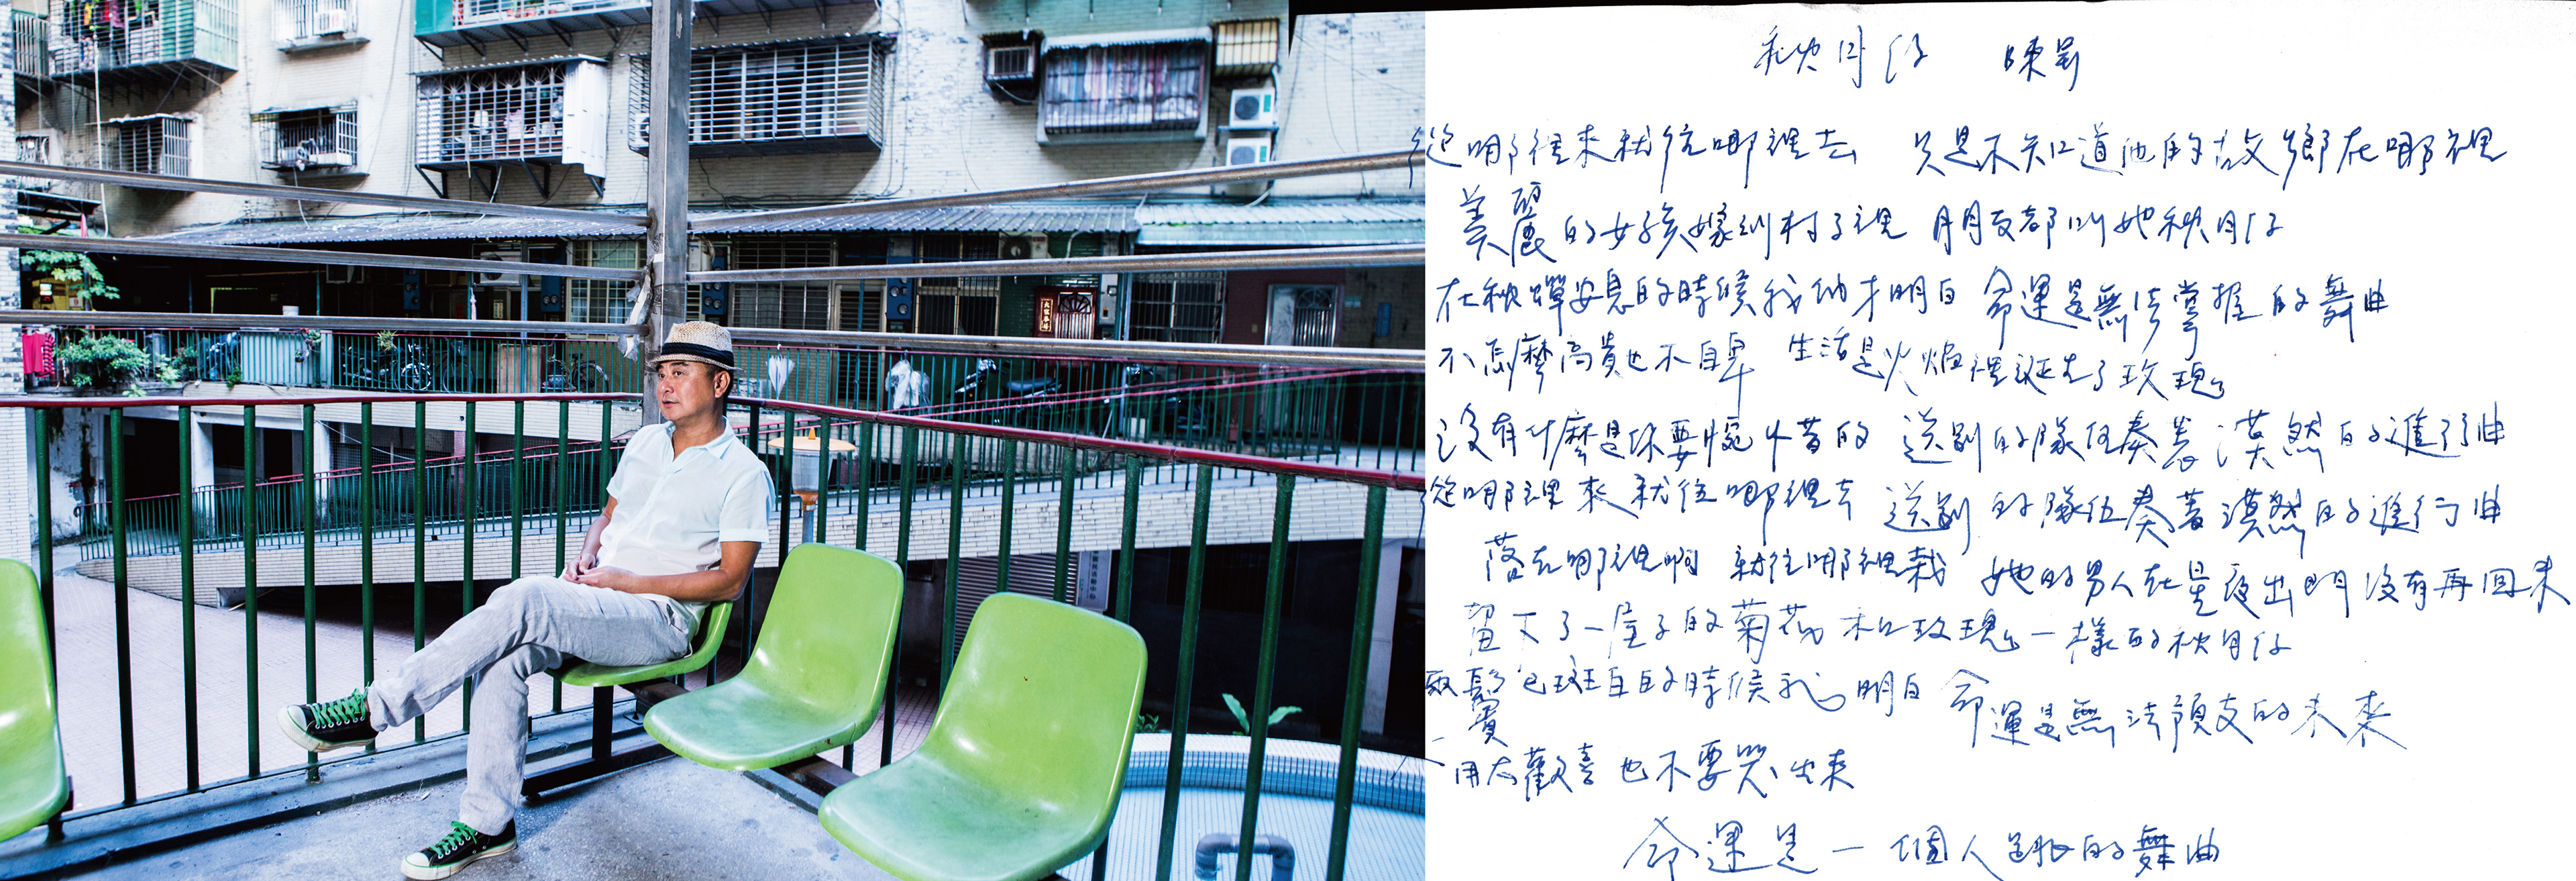 秋月仔 陳昇
從哪裡來就往哪裡去 只是不知道他的故鄉在哪裡
美麗的女孩嫁到村子裡 朋友都叫她秋月仔
在秋蟬安息的時候我們才明白 命運是無法掌握的舞曲
不怎麼高貴也不自卑 生活是火焰裡誕生了玫瑰
沒有什麼是你要惋惜的 送別的隊伍奏著漠然的進行曲
從哪裡來就往哪裡去 送別的隊伍奏著漠然的進行曲
落在哪裡啊 就往哪裡栽 她的男人在星夜出門沒有再回來
留下了一屋子的菊花和玫瑰一樣的秋月仔
鬢已斑白的時候 明白 命運是無法預支的未來
不用太歡喜 也不要哭出來
命運是一個人跳的舞曲